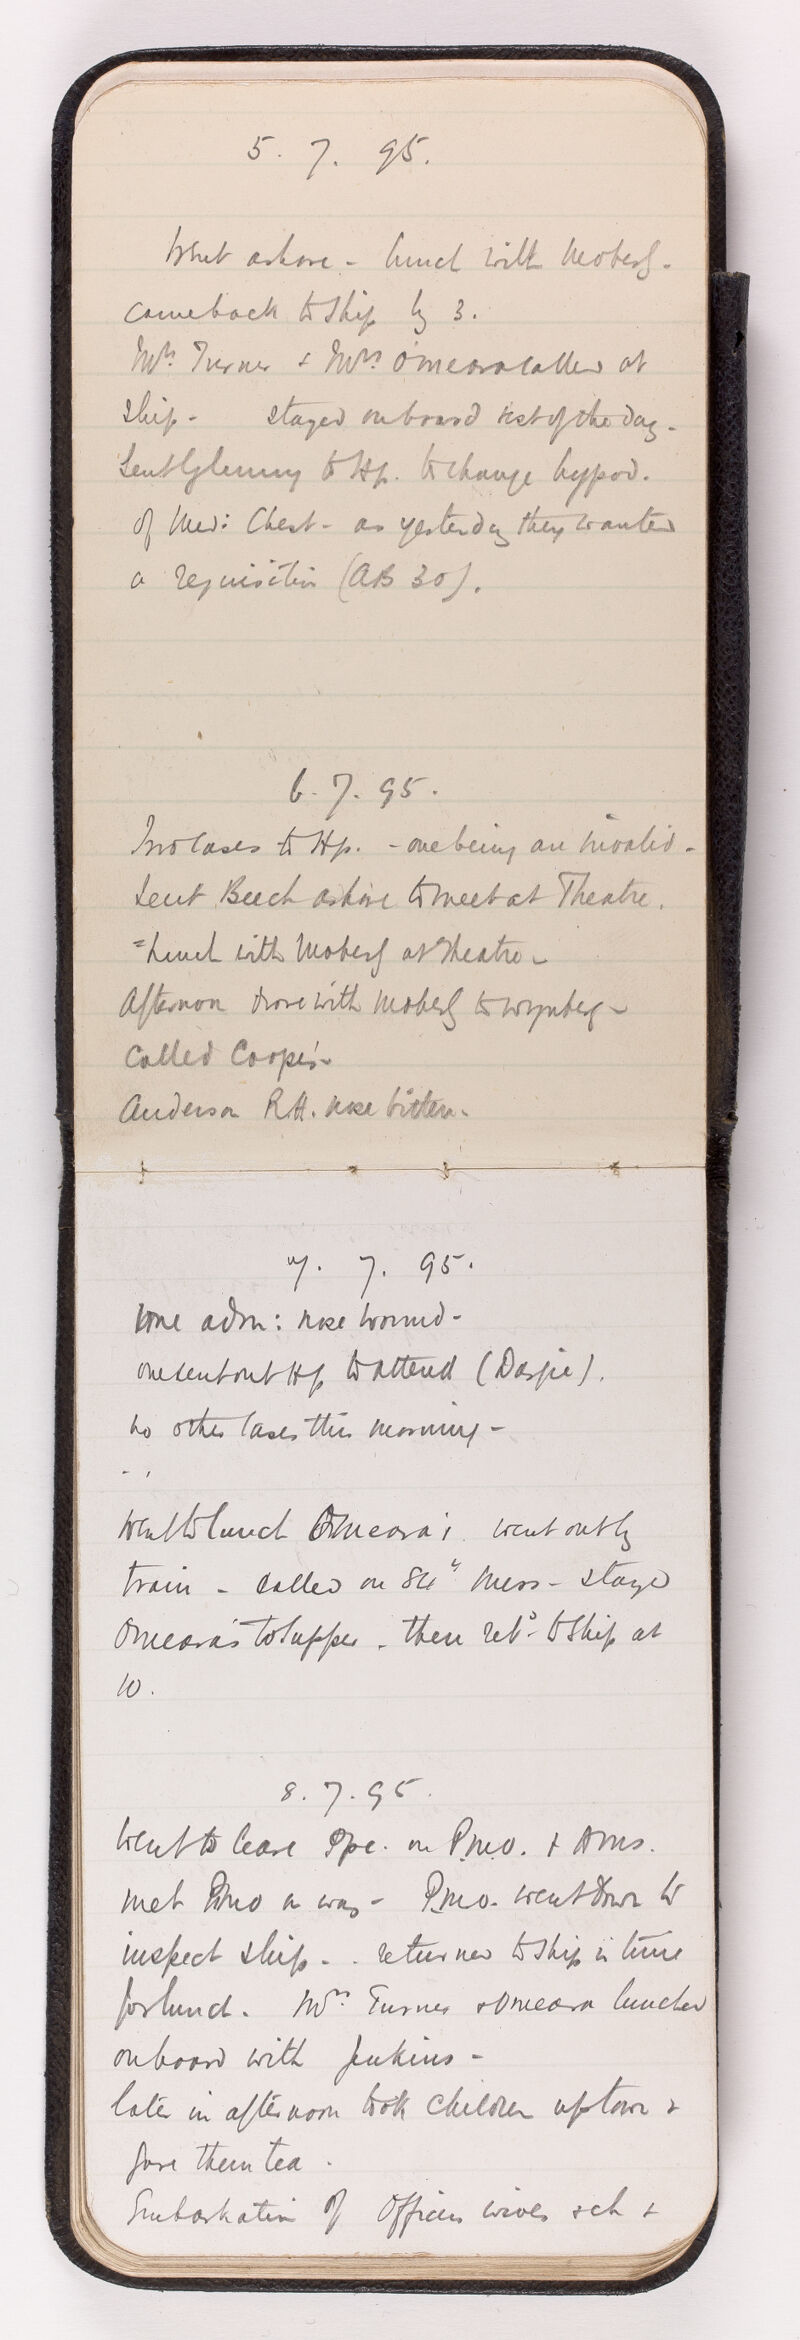 5. 7. 95.
Went ashore - lunch with Moberg -
came back to ship by 3.
Mrs. Turner & Mrs O'Meara called at
ship - stayed onboard rest of the day -
Sent Glenny to Hp. to change hypod.
of Med: Chest - as yesterday they wanted
a requisition (AB 30).
6. 7. 95.
Two cases to Hp. - one being an invalid -
Sent Beech ashore to meet at Theatre.
Lunch with Moberg at Theatre -
Afternoon drove with Moberg to Wynberg -
Called Coopers -
Anderson R.H. nose bitten -
7. 7. 95.
One adm: nose wound -
one sent out Hp to attend
no other cases this morning -
Went to lunch O'Meara's went out by
train - called on 84" Mess - stayed
O'Meara's to supper - then retd. to ship at
10.
8. 7. 95.
Went to leave ppc. on P.M.O. &
met PMO on way - P.M.O. went down to
inspect ship - returned to ship in time
for lunch. Mrs. Turner & O'Meara lunched
onboard with Jenkins -
later in afternoon took children up town &
gave them tea.
Embarkation of Officers wives & ch &